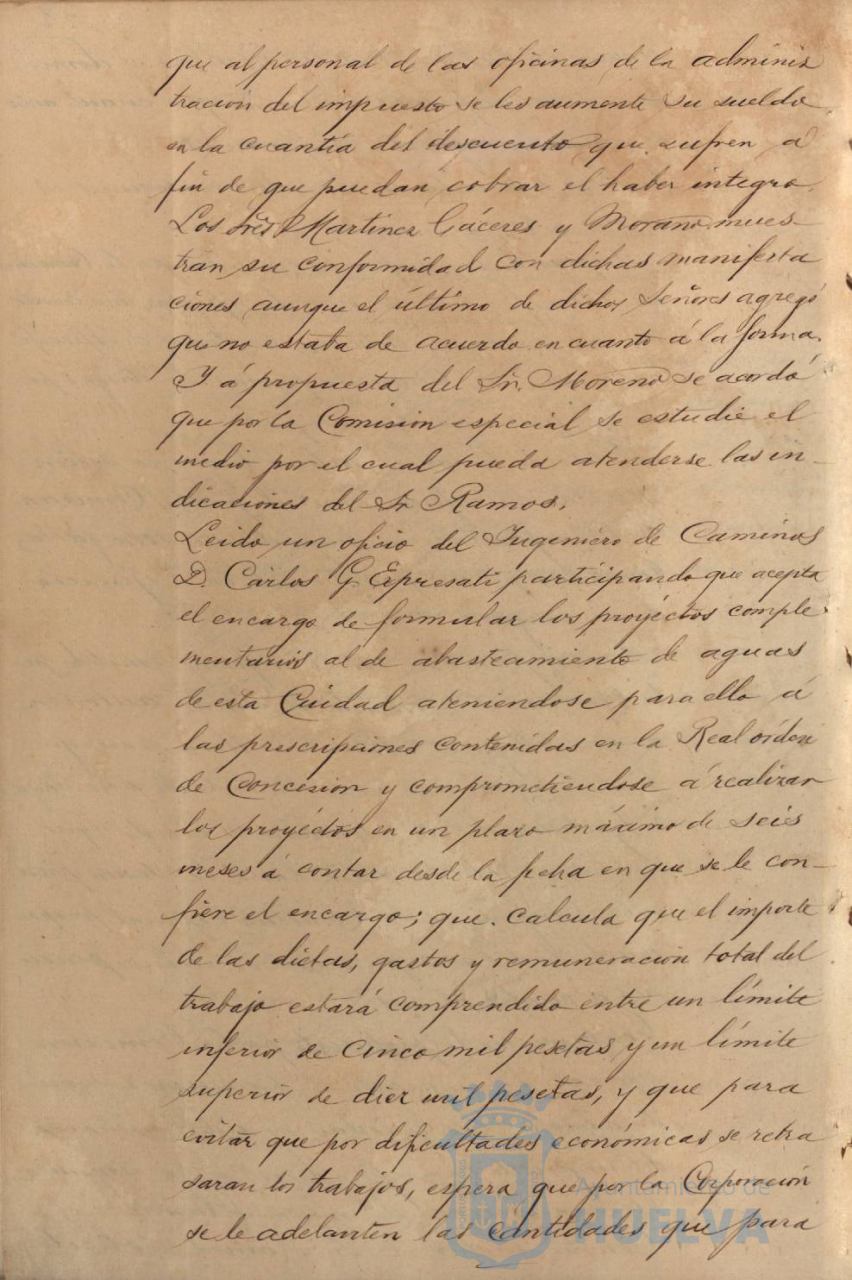 que al personal de las oficinas de la adminis
tracion del impuesto se les aumente su sueldo
en la cuantía del descuento que sufren a
fin de que puedan cobrar el haber integro.
Los Sres Martinez Cáceres y Moreno mues-
tran su conformidad con dichas manifesta
ciones aunque el último de dichos Señores agregó
que no estaba de acuerdo en cuanto á la forma.
Y á propuesta del Sr. Moreno se acordó
que por la Comision especial se estudie el
medio por el cual pueda atenderse las in-
dicaciones del Sr Ramos.
Leido un oficio del Ingeniero de Caminos
D. Cárlos G. participando que acepta
el encargo de formular los proyéctos comple-
mentarios al de abastecimiento de aguas
de esta Ciudad ateniendose para ello á
las prescripciones contenidas en la Real órden
de Concesion y comprometiendose á realizar
los proyéctos en un plazo máximo de seis
meses á contar desde la fecha en que se le con-
fiere el encargo; que calcula que el importe
de las dietas, gastos y remuneracion total del
trabajo estará comprendido entre un límite
inferior de cinco mil pesetas y un límite
superior de diez mil pesetas, y que para
evitar que por dificultades económicas se retra
saran los trabajos, espera que por la Corporación
se le adelanten las cantidades que para
Ayuntamiento de
HUELVA